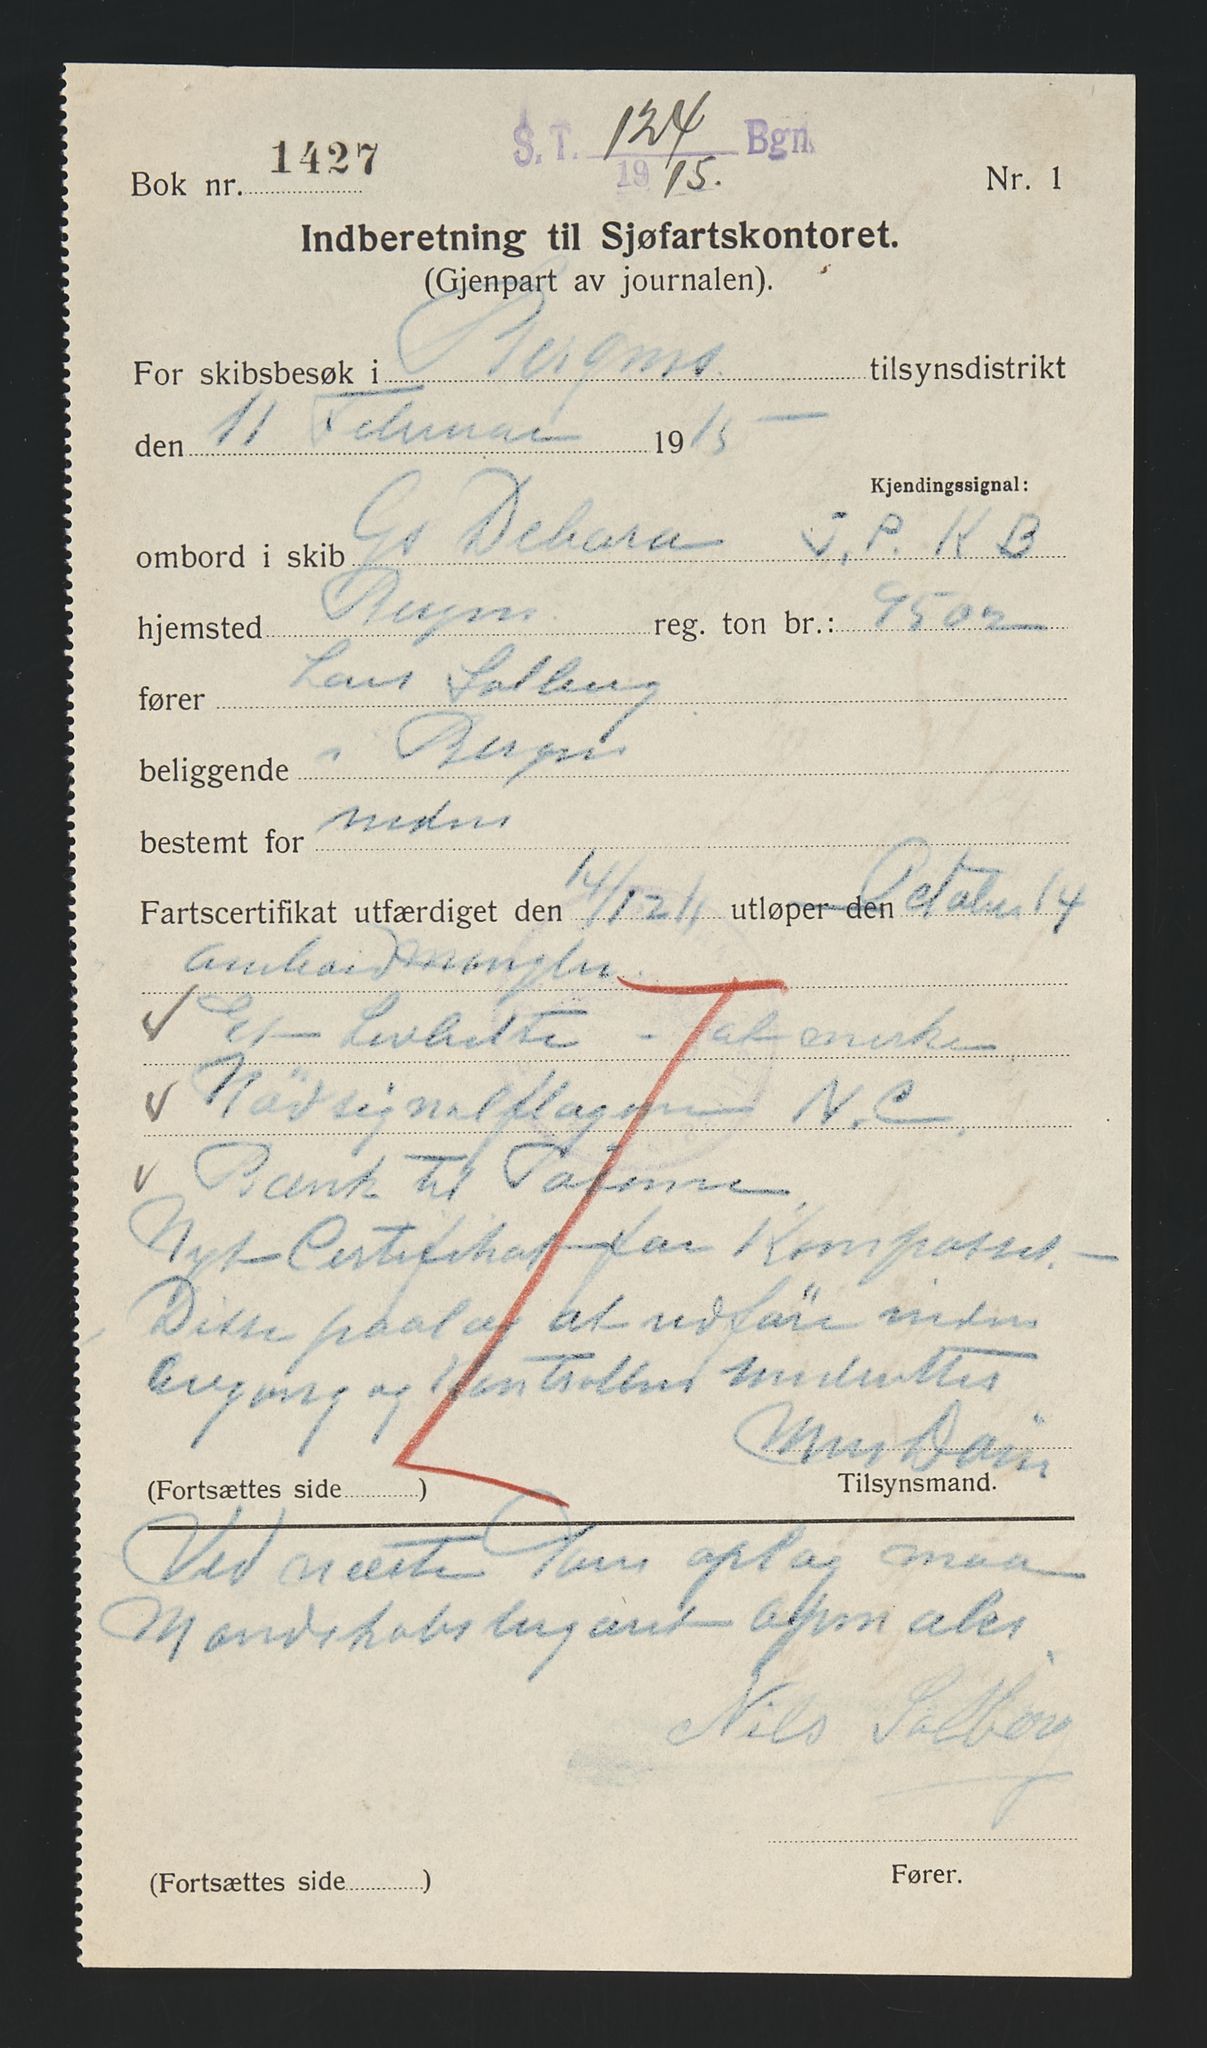 S. T. 124 Bgn.
1915.
Bok nr. 1427
Nr. 1
Indberetning til Sjøfartskontoret.
(Gjenpart av journalen).
For skibsbesøk i Bergens tilsynsdistrikt
den 11 Februar 1915
Kjendingssignal:
ombord i skib Gs Debora P. K B
hjemsted Bergen reg. ton br.: 9502
fører Lars Solberg
beliggende i Bergen
bestemt for
Fartscertifikat utfærdiget den 14/12 11 utløper den October 14
ombord mangler
Et Livbelte - at merke
Nödsignalflagene N. C.
Bænk til
Nyt Certifikat for Kompasset.
Disse paalag at udføre inden
avgang og Kontrollen underrettes
(Fortsættes side )
Tilsynsmand.
Ved næste oplag maa
Mandskabslugaret opmales
Nils Solberg
(Fortsættes side )
Fører.